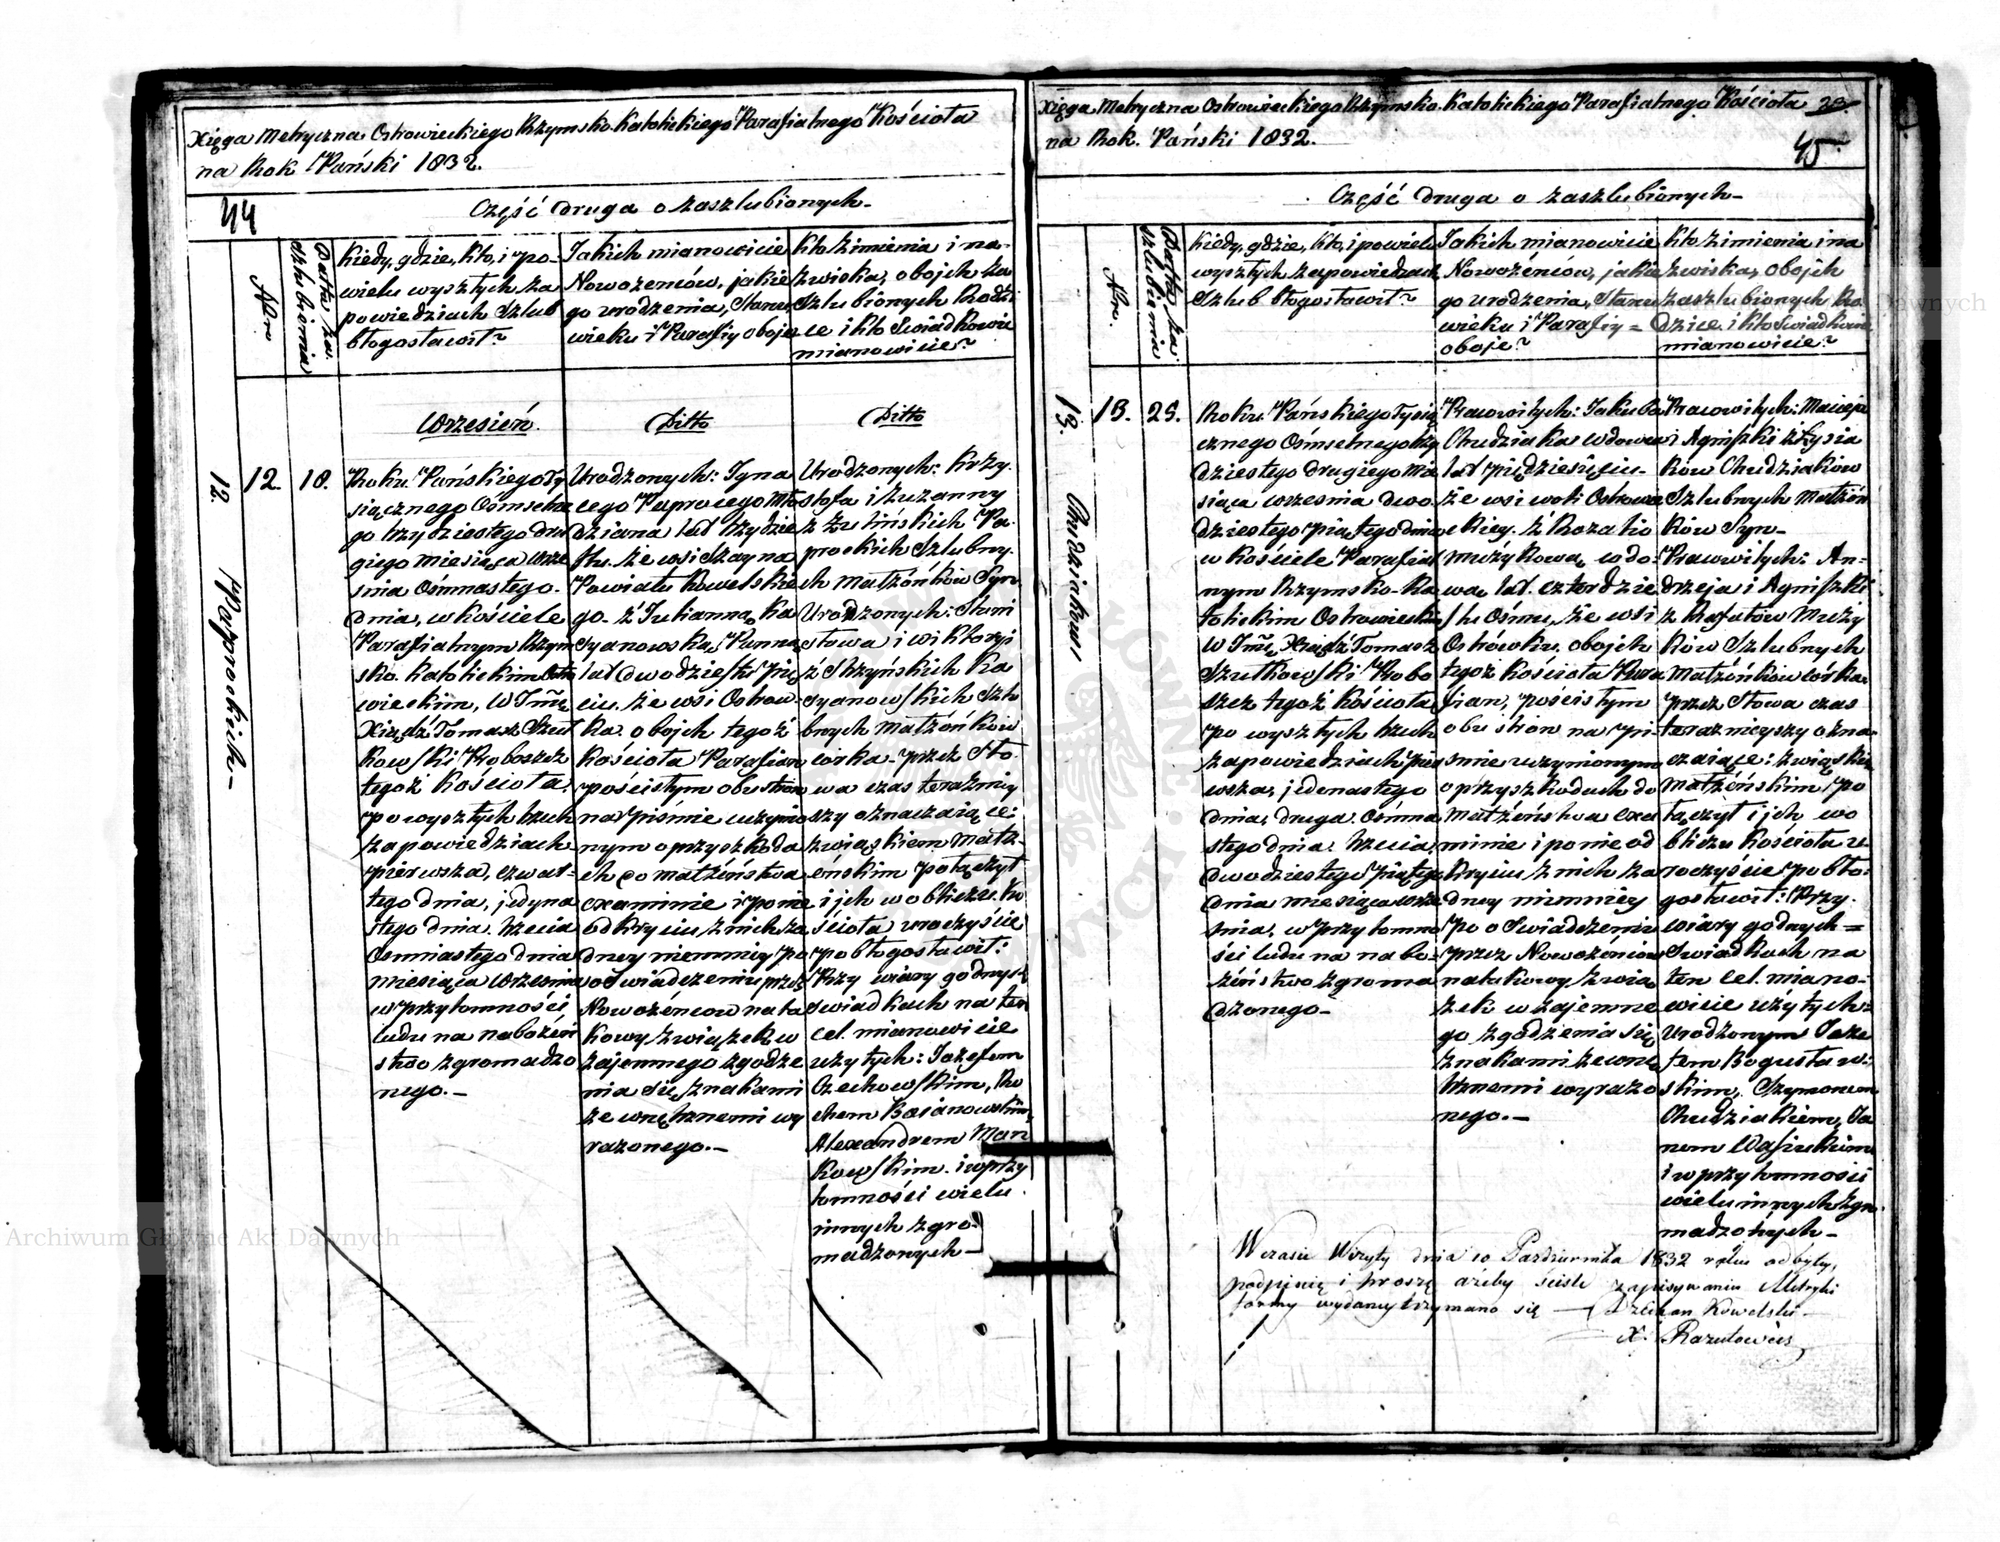 Xięga Metryczna Ostrowieckiego Rzymsko. Katolickiego Parafialnego Kościoła
na Rok Pański 1832.
44
Część druga o zaszlubionych.
Nro.
Datta za
szlubienia
Kiedy, gdzie, kto, i po-
wielu wyszłych za
powiedziach Szlub
błogosławił?
Jakich mianowicie
Nowożeńców, jakie
go urodzenia, Stanu,
wieku i Parafiy oboje
Kto z imienia i na-
zwiska, obojch za
szlubionych Rodzi
ce i kto Swiadkowie
mianowicie?
Wrzesień.
Ditto
Ditto
12.
Paprockich.
12.
18.
Roku Pańskiego Ty
siącznego Ośmsetne
go trzydziestego dru
giego miesiąca Wrze
śnia Ośmnastego.
dnia, w kościele
Parafialnym Rzym
sko. Katolickim Ostro
wieckim, W Jmć
Xiądz Tomasz Szut
kowski Proboszcz
tegoż Kościoła,
po wyszłych trzech
zapowiedziach
pierwsza, czwar-
tego dnia, jedyna
stego dnia. trzecia
Osmnastego dnia
miesiąca Wrzesnia
w przytomności,
ludu na nabożeń
stwo zgromadzo
nego. -
Urodzonych: Igna
cego Paprocego Mło
dziana lat trzydzie
stu. ze wsi Szayna
Powiatu Kowelskie
go. z Julianną Ka
syanowską, Panną
lat dwadzieście pię
ciu. ze wsi Ostrow-
ka. obojch tegoż
Kościoła Parafian
pościsłym obustron
na piśmie uczynio
nym o przyszkoda
ch do małżeństwa
examinie i ponie
odkryciu z nich ża
dney niemniey po
oświadczeniu przez
Nowożeńcow na ta
kowy związek w
zajemnego zgodze
nia się znakami
zewnętrznemi wy
rażonego. -
Urodzonych: Krzy.
sztofa i Zuzanny
z Zalińskich Pa-
prockich Szlubny.
ch małżonków Syn
Urodzonych: Stani
sława i Wiktoryi
z Skrzyńskich Ka
syanowskich Szlu
bnych małżonków
córka. przez sło.
wa czas teraźniey
szy oznaczaiące:
związkiem małż-
eńskim połączył
i jch w obliczu Ko
ścioła uroczyście
pobłogosławił:
Przy wiary godnych
Swiadkach na ten
cel. mianowicie
użytych: Jozefem
Czechowskim, Ro
chem Basanowskim,
Alexandrem Mań
kowskim. i w przy
tomności wielu.
innych zgro-
madzonych -
Xięga Metryczna Ostrowieckiego Rzymsko. Katolickiego Parafialnego Kościoła 23.
na Rok. Pański 1832.
45.
Część druga o zaszlubionych.
Nro.
Datta za
szlubienia
Kiedy, gdzie, kto, i powielu
wyszłych zapowiedziach
Szlub błogosławił?
Jakich mianowicie
Nowożeńców, jakie
go urodzenia, Stanu
wieku i Parafiy =
oboje?
Kto z imienia i na
zwiska, obojch
zaszlubionych Ro
dzice i kto Swiadkowie
mianowicie?
13.
Chudziakow
13.
25.
Roku Pańskiego Tysią
cznego Ośmsetnego trzy
dziestego drugiego mie
siąca wrzesnia dwu
dziestego piątego dnia
w kościele Parafial
nym Rzymsko-Ka
tolickim Ostrowieckim
W Jmć Xiądz Tomasz
Szutkowski Probo
szcz tegoż Kościoła
po wyszłych trzech
zapowiedziach pier
wsza, jedenastego
dnia, druga. Ośmna
stego dnia. trzecia,
dwodziestego piątego
dnia miesiąca wrze
śnia. w przytomno
ści ludu na nabo-
żeństwo zgroma
dzonego.
Pracowitych: Jakuba
Chudziaka wdowca
lat pięćdziesięciu-
ze wsi woli Ostrowie
ckiey. z Rozalio
Muzykową, wdo-
wą, lat. czterdzie
stu Ośmu, ze wsi
Ostrówku. obojch
tegoż Kościoła Para
fian, pościsłym
obustron na pi-
smie uczynionym
o przyszkodach do
małżeństwa exa
minie i ponie od
kryciu z nich ża
dney niemniey
po oświadczeniu
przez Nowożeńcow
na takowy zwią
zek w zajemne
go zgodzenia się
znakami zewnę
trznemi wyrażo
nego. -
Pracowitych: Macieja
i Agniszki z Łysia
ków Chudziaków
Szlubnych małżon
ków Syn-
Pracowitych: An-
drzeja i Agniszki
z Rafałów Muzy
ków Szlubnych
małżonków córka,
przez słowa czas
teraznieyszy ozna-
czaiące: związkie
małżeńskim po
łączył i jch wo
bliczu Kościoła u
roczyście pobło.
gosławił: Przy.
wiary godnych =
Swiadkach na
ten cel. miano-
wicie użytych:
Urodzonym Joze
fem Bogusław-
skim, Szymonem
Chudziakiem, Ja
nem Wasiukiem
i w przytomności
wielu innych zgro
madzonych -
W czasie Wizyty dnia 10 Pazdziernika 1832 roku odbytey,
podpisuię i proszę ażeby ściśle zapisywania Metryki
formy wydaney trzymano się — Dziekan Kowelski
X.
Archiwum Główne Akt Dawnych